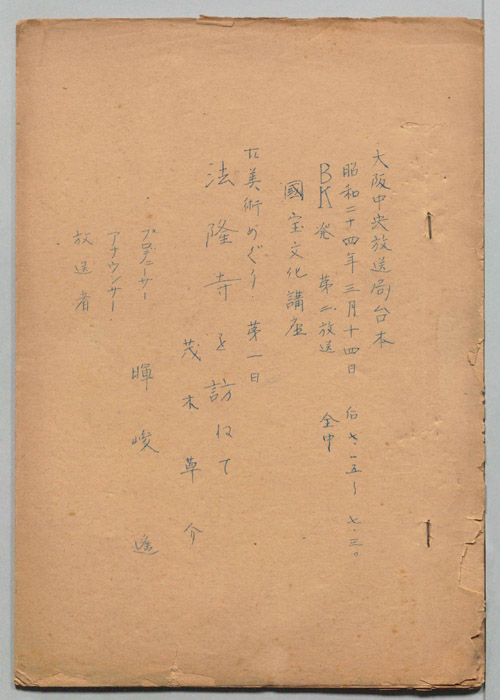 大阪中央放送局台本
昭和二十四年三月十四日 后七・一五〜七・三〇
BK発 第二放送 全中
國宝文化講座
古美術めぐり・第一日
法隆寺を訪ねて
茂木草介
プロデューサー
アナウンサー
放送者
暉峻 遙